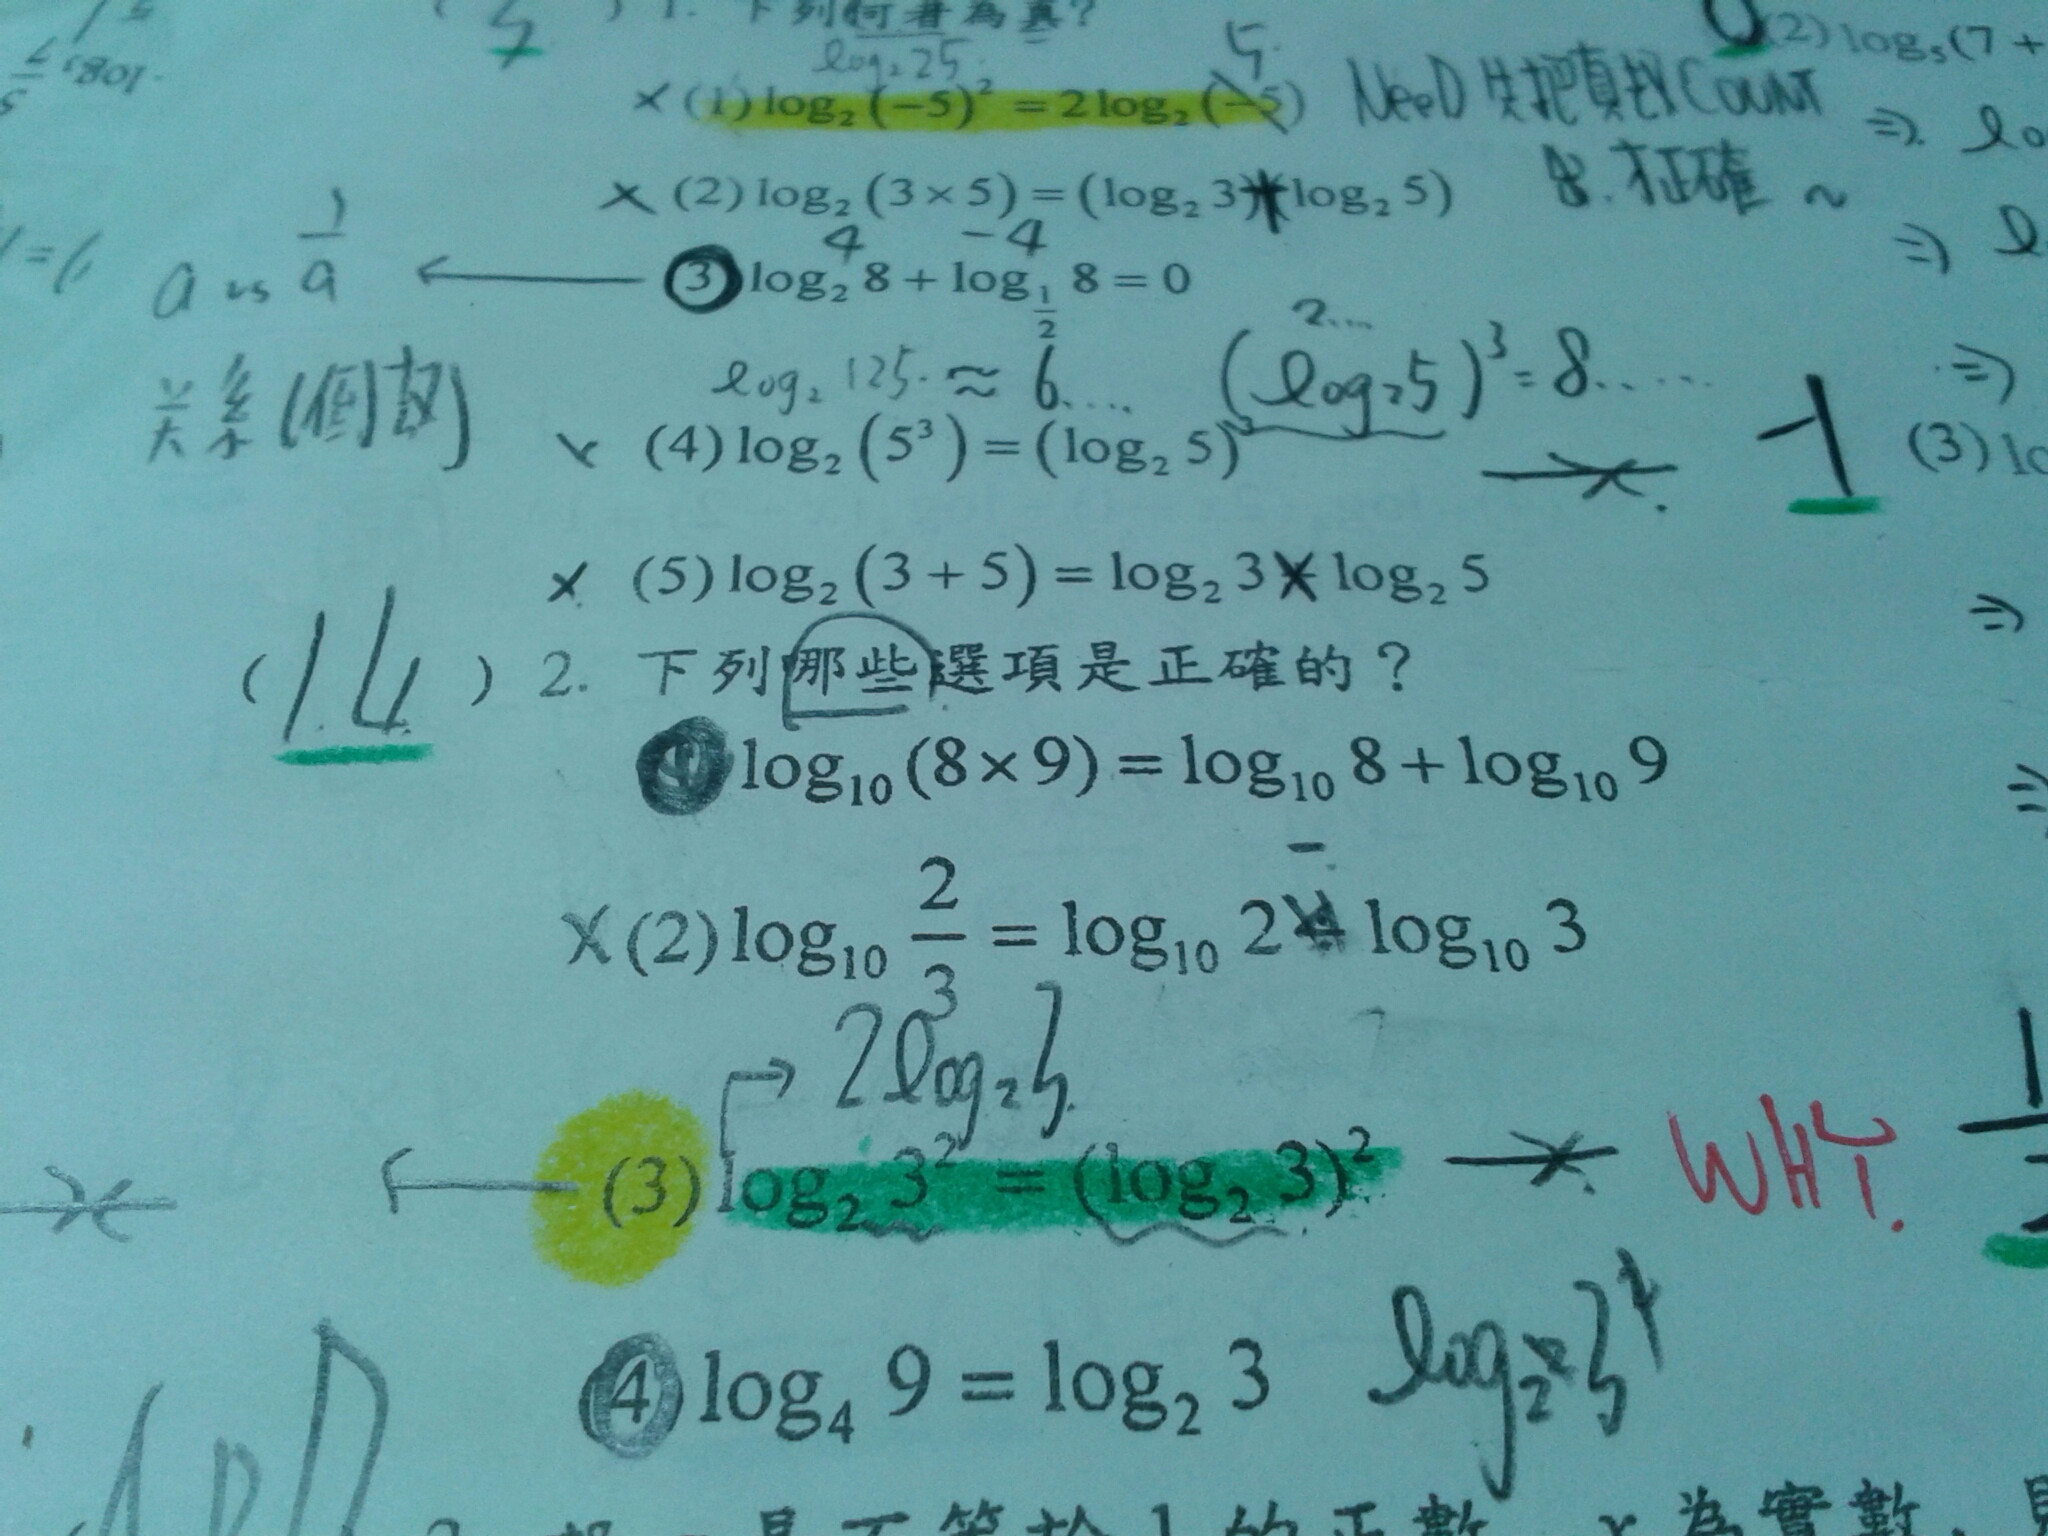 1. 下列何者為真?
log₂25
5
(1) log₂(−5)² = 2log₂(−5) NeeD 先把真数COUNT
出.才正確~
(2) log₂(3×5) = (log₂3)(log₂5)
4 −4
(3) log₂8 + log_{1/2} 8 = 0
a vs 1/a
关系(倒數)
log₂125 ≈ 6.... (log₂5)³ = 8......
2...
(4) log₂(5³) = (log₂5)³
(5) log₂(3+5) = log₂3 × log₂5
(1.4) 2. 下列那些選項是正確的?
(1) log₁₀(8×9) = log₁₀8 + log₁₀9
−
(2) log₁₀ 2/3 = log₁₀2 log₁₀3
2log₂3
(3) log₂3² = (log₂3)² WHY.
(4) log₄9 = log₂3
(2) log₅(7+
(3) lo